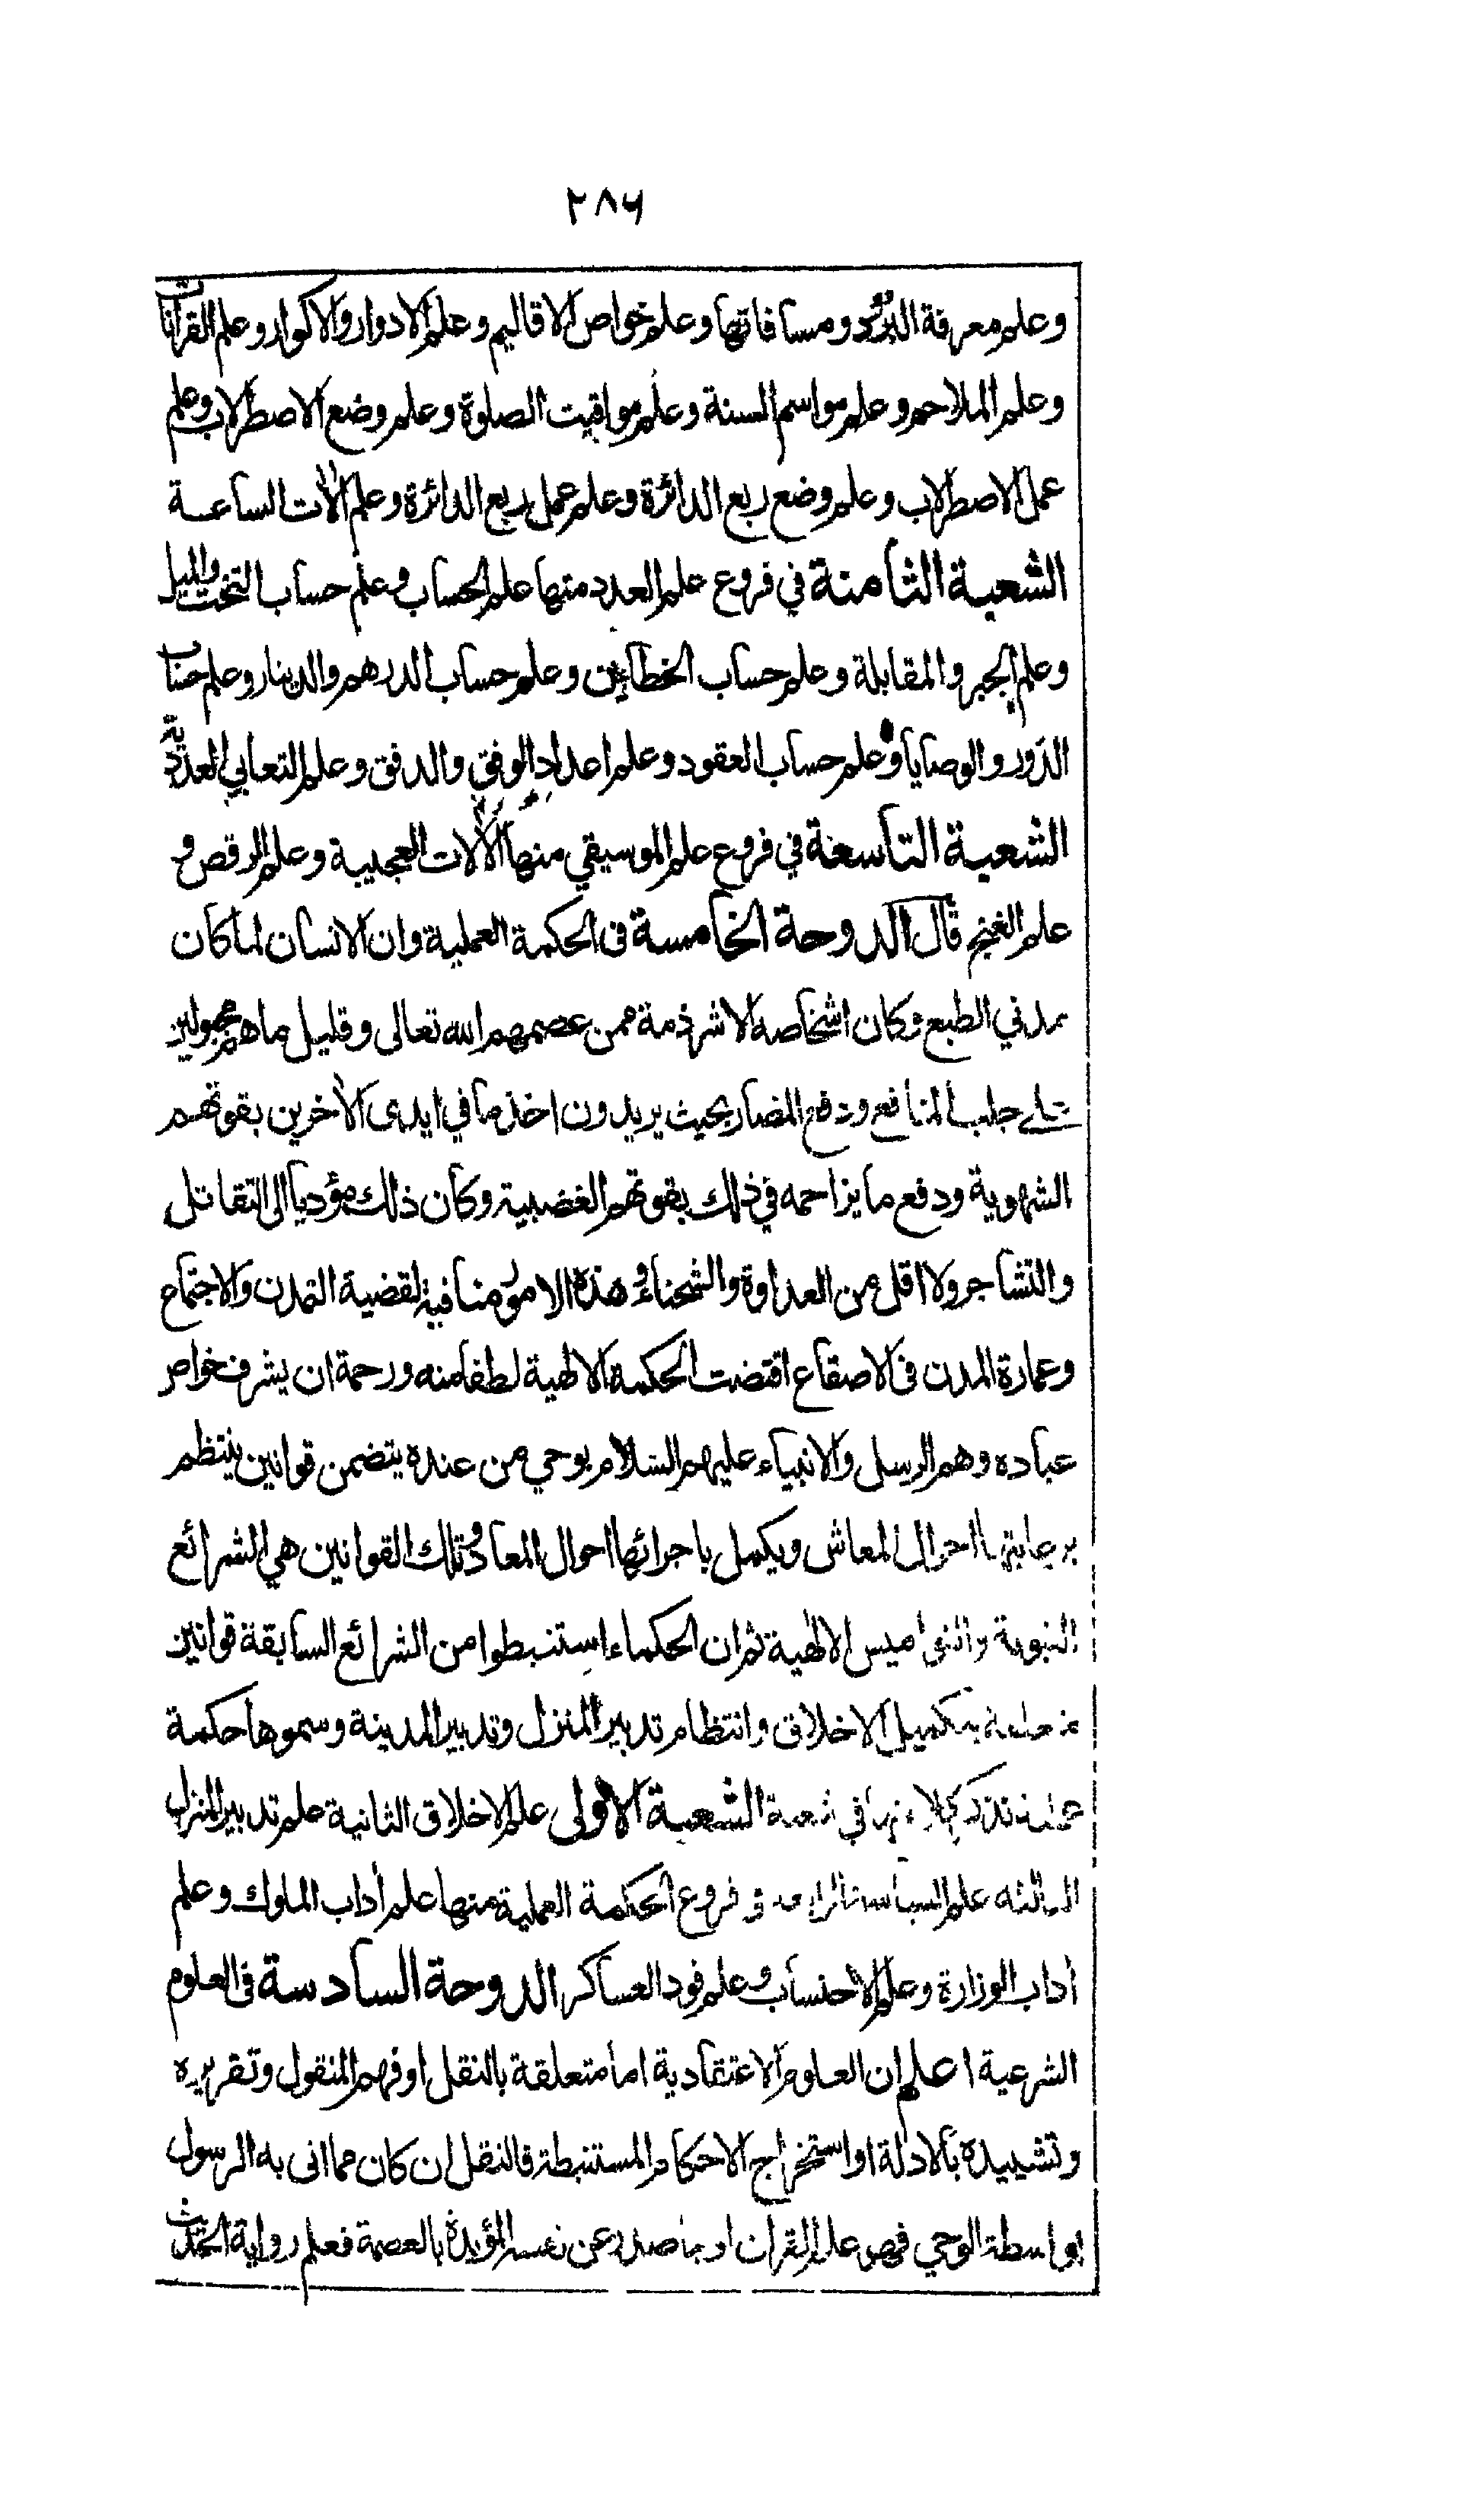 ٢٨٦
وعلم معرفة البرد ومسافاتها وعلم خواص الاقاليم وعلم الادوار والاكوار وعلم القرانات
وعلم الملاحم وعلم مواسم السنة وعلم مواقيت الصلوة وعلم وضع الاصطرلاب وعلم
عمل الاصطرلاب وعلم وضع ربع الدائرة وعلم عمل ربع الدائرة وعلم آلات الساعة
الشعبة الثامنة في فروع علم العدد منها علم الحساب وعلم حساب التخت والميل
وعلم الجبر والمقابلة وعلم حساب الخطاءين وعلم حساب الدرهم والدينار وعلم حساب
الدور والوصايا وعلم حساب العقود وعلم اعداد الوفق والدفق وعلم التعابي العددية
الشعبة التاسعة في فروع علم الموسيقي منها الآلات العجيبة وعلم الرقص و
علم الغنج قال الدوحة الخامسة في الحكمة العملية وان الانسان لما كان
مدني الطبع وكان اشخاصه الا شرذمة ممن عصمهم الله تعالى وقليل ما هم مجبولين
على جلب المنافع ودفع المضار بحيث يريدون اخذ ما في ايدى الآخرين بقوتهم
الشهوية ودفع ما يزاحمه في ذلك بقوتهم الغضبية وكان ذلك مؤديا الى التقاتل
والتشاجر ولا اقل من العداوة والشحناء وهذه الامور منافية لقضية التمدن والاجتماع
وعمارة المدن في الاصقاع اقتضت الحكمة الالهية لطفا منه ورحمة ان يشرف خواص
عباده وهم الرسل والانبياء عليهم السلام بوحي من عنده يتضمن قوانين ينتظم
برعايتها احوال المعاش ويكمل باجرائها احوال المعاد وتلك القوانين هي الشرائع
النبوية والنواميس الالهية ثم ان الحكماء استنبطوا من الشرائع السابقة قوانين
بتكميل الاخلاق وانتظام تدبير المنزل وتدبير المدينة وسموها حكمة
عملية فنذكر كلا منها في شعبة الشعبة الاولى علم الاخلاق الثانية علم تدبير المنزل
الثالثة علم السياسة الرابعة في فروع الحكمة العملية منها علم آداب الملوك وعلم
آداب الوزارة وعلم الاحتساب وعلم قود العساكر الدوحة السادسة في العلوم
الشرعية اعلم ان العلوم الاعتقادية اما متعلقة بالنقل او فهم المنقول وتقريره
وتشييده بالادلة او استخراج الاحكام المستنبطة فالنقل ان كان مما اتى به الرسول
بواسطة الوحي فهو علم القرآن او بما صدر عن نفسه المؤيدة بالعصمة فعلم رواية الحديث